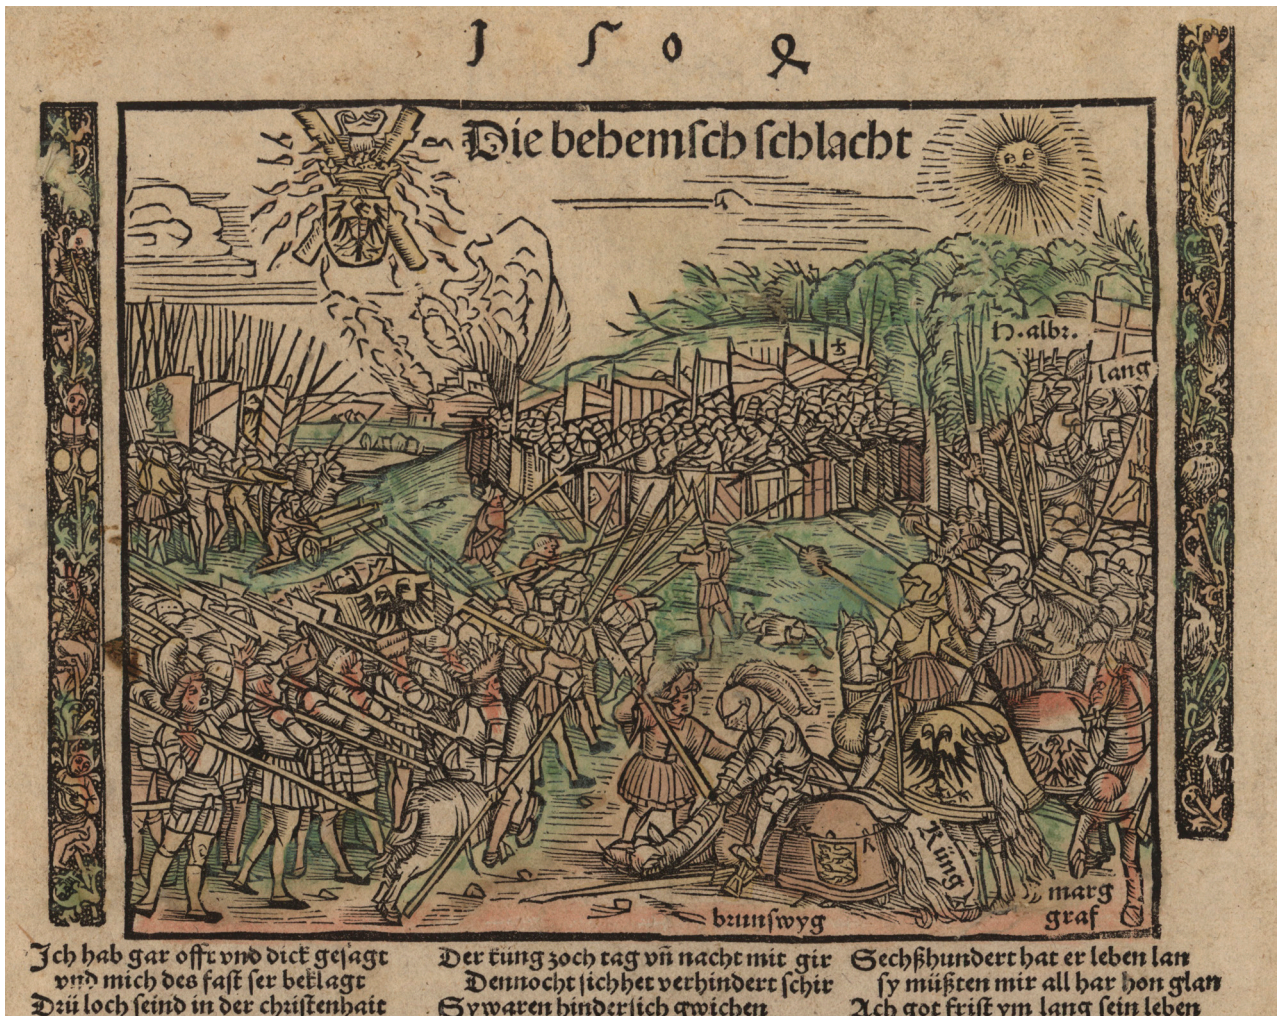 1504
Die behemsch schlacht
H. albr.
lang
King
marg
graf
brunswyg
Ich hab gar offt vnd dick gesagt
vnd mich des fast ser beklagt
Drü loch seind in der christenhait
Der küng zoch tag vñ nacht mit gir
Dennocht sichhet verhindert schir
Sy waren hindersich gwichen
Sechßhundert hat er leben lan
sy müßten mir all har hon glan
Ach got frist ym lang sein leben